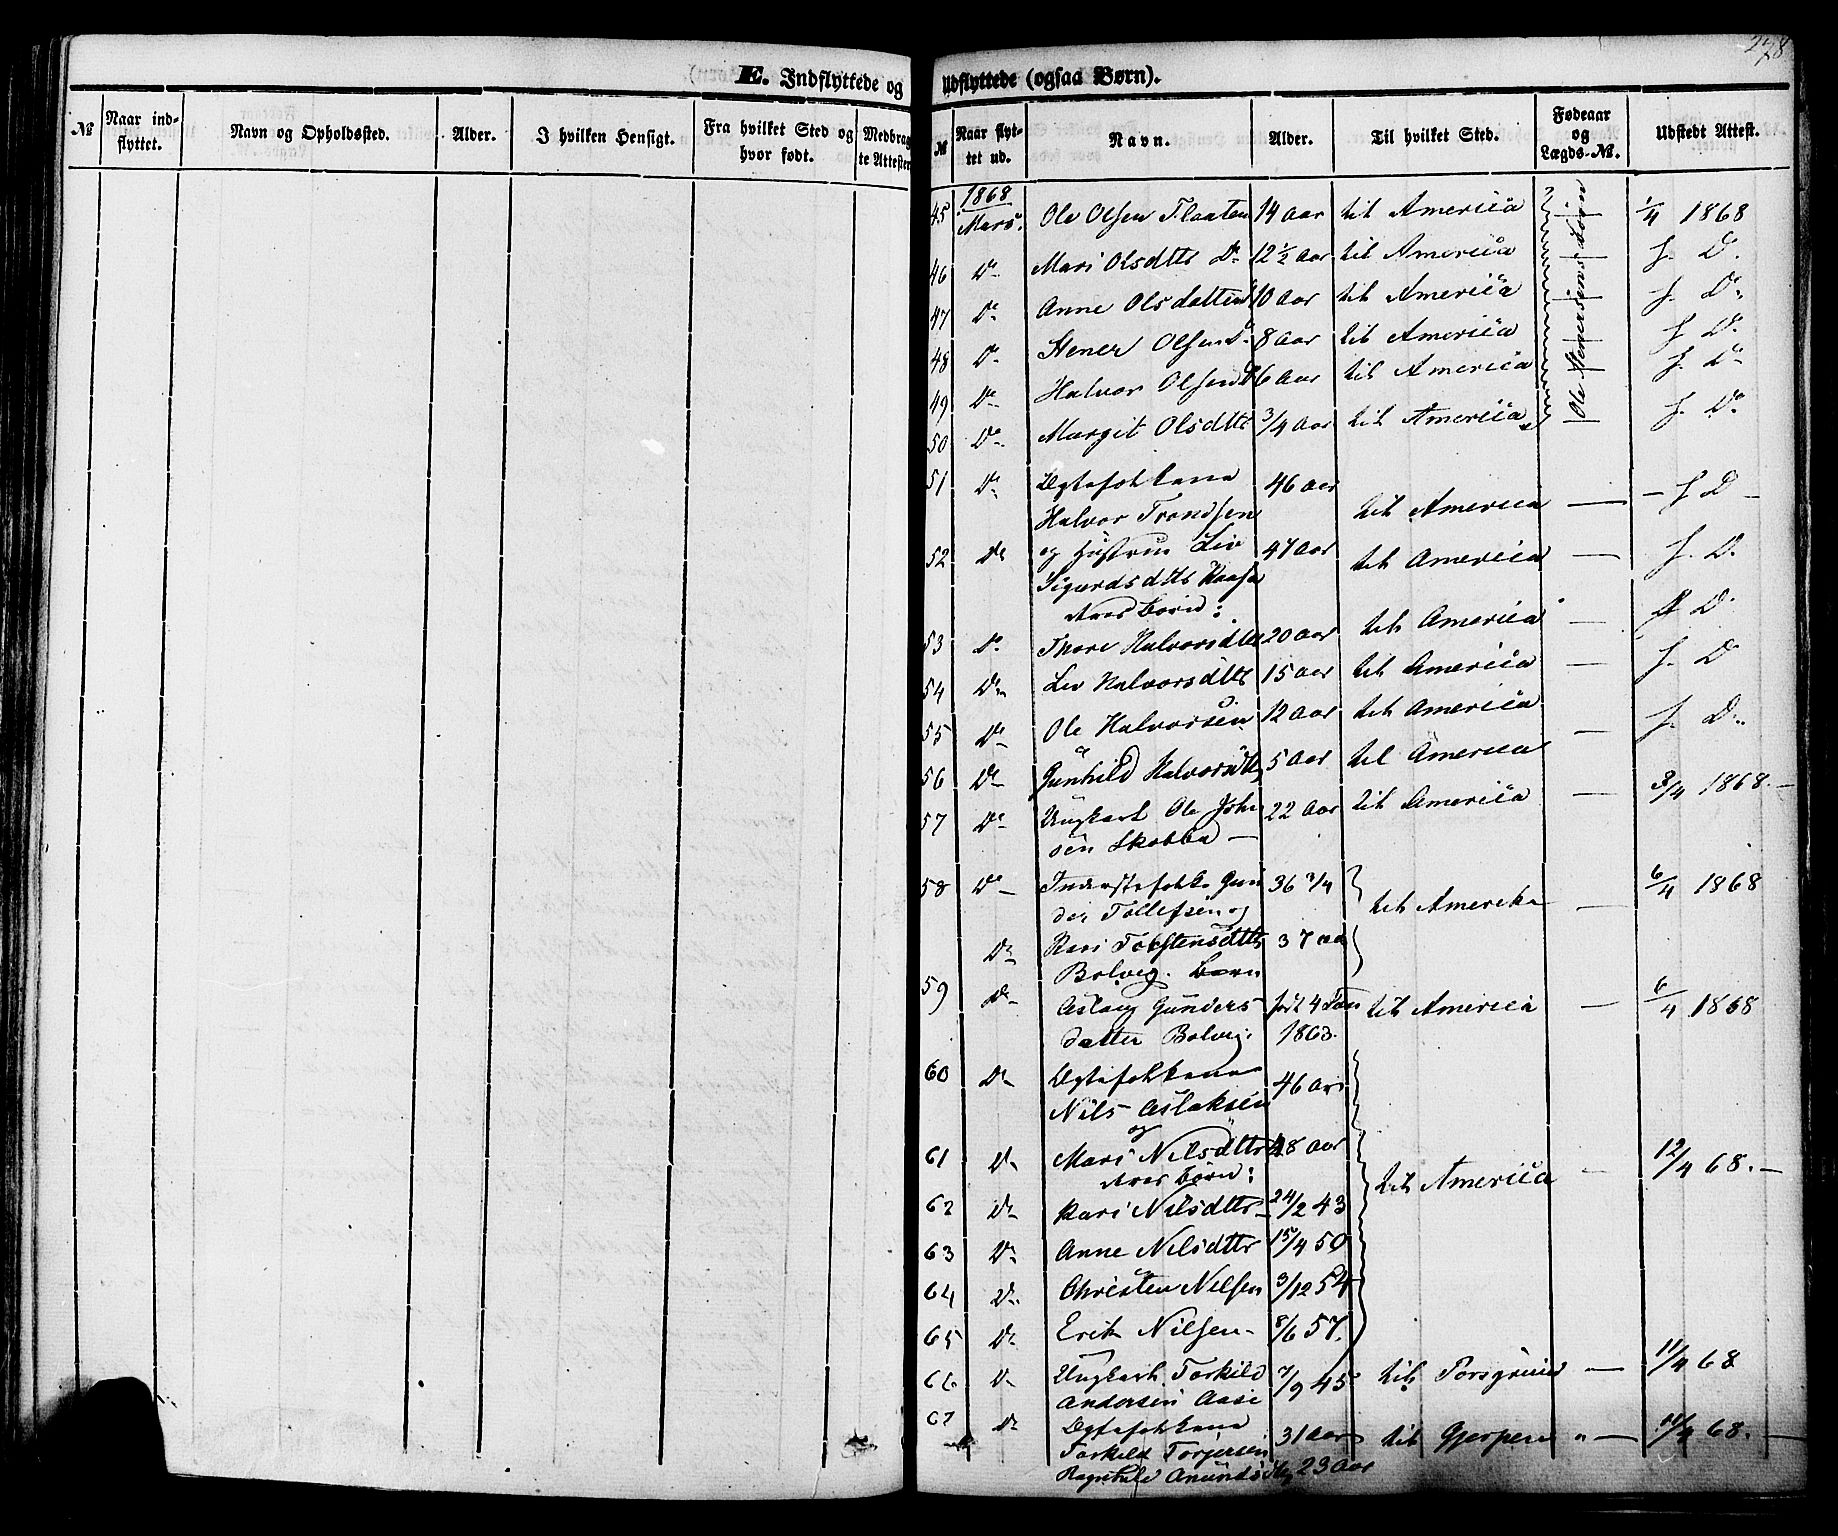 278
E. Indflyttede og
Udflyttede (ogsaa Børn).
№ Naar ind-flyttet. Navn og Opholdssted. Alder. I hvilken Hensigt. Fra hvilket Sted og hvor født. Medbrag-te Attester
№ Naar flyt-tet ud. Navn. Alder. Til hvilket Sted. Fødeaar og Lægds-№. Udstedt Attest.
1868
45 Mars. Ole Olsen Flaaten 14 Aar til America 1/4 1868
46 Do Mari Olsdttr Do 12 1/2 Aar til America f. D.
47 Do Anne Olsdatter 10 Aar til America f. Do
48 Do Stener Olsen Do 8 Aar til America f. Do
49 Do Halvor Olsen 6 Aar til America f. Do
50 Do Margit Olsdttr 3/4 Aar til America f. Do
Ole Stenersens Børn
51 Do Egtefolkene 46 Aar
Halvor Trondsen til America — f D —
52 Do og Hustrue Liv 47 Aar til America — f. D.
Sigurdsdttr
deres Børn:
53 Do Thore Halvorsdttr 20 Aar til America — D.
54 Do Liv Halvorsdttr 15 Aar til America — f. D
55 Do Ole Halvorsen 12 Aar til America
56 Do Gunhild Halvorsdttr 5 Aar til America — f. D.
57 Do Ungkarl Ole John 22 Aar til America — 3/4 1868. —
sen Skobba —
58 Do Inderstefolk Gun 36 3/4
der Tollefsen og til Amerika — 6/4 1868
Do Kari Torstensdttr 37 aar
Bolveg. Børn
59 Do Aslaug Gunders født 4 Jan til America — 6/4 1868
datter Bolveg. 1863.
60 Do Egtefolkene 46 Aar
Nils Aslaksen
og
61 Do Mari Nilsdttr 48 Aar til America — 12/4 68. —
deres Børn:
62 Do Kari Nilsdttr 24/2 43
63 Do Anne Nilsdttr 15/4 50
64 Do Christen Nilsen 3/12 54
65 Do Erik Nilsen 8/6 57.
66 Do Ungkarl Torkild 7/9 45 til Porsgrund — 11/4 68
Andersen Aase
67 Do Egtefolkene
Torkild Torjersen 31 Aar til Gjerpen " — 11/4 68. —
Ragnhild Anunds 23 Aar